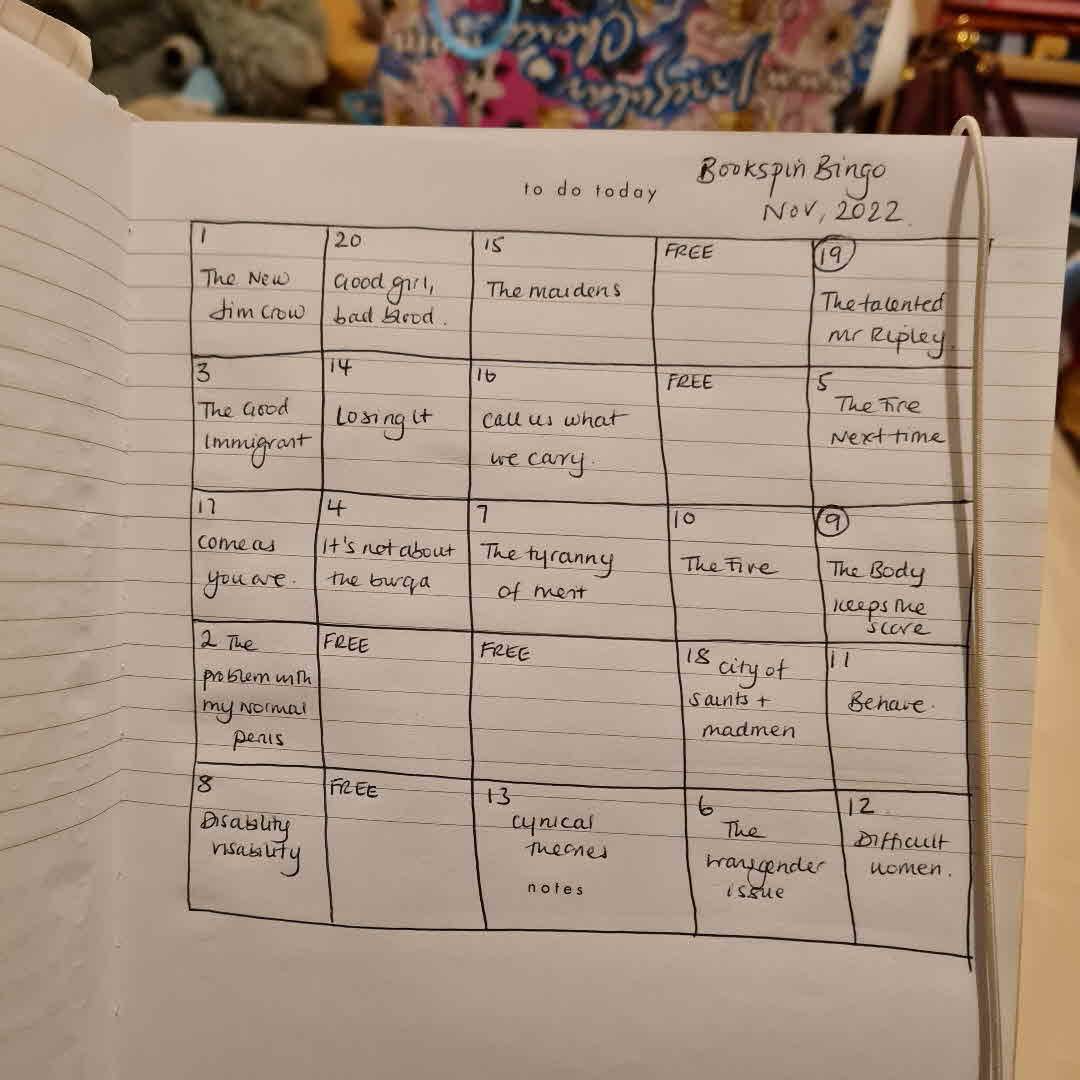 to do today
Bookspin Bingo
Nov, 2022.
1
The New
Jim Crow
20
Good girl,
bad blood.
15
The maidens
FREE
19
The talented
Mr Ripley.
3
The Good
Immigrant
14
Losing it
16
Call us what
we cary.
FREE
5
The Fire
Next time
17
Come as
you are.
4
It's not about
the burqa
7
The tyranny
of merit
10
The Five
9
The Body
keeps the
score
2 The
problem with
my normal
penis
FREE
FREE
18 City of
saints +
madmen
11
Behave.
8
Disability
visability
FREE
13
Cynical
theories
notes
6
The
transgender
issue
12
Difficult
women.